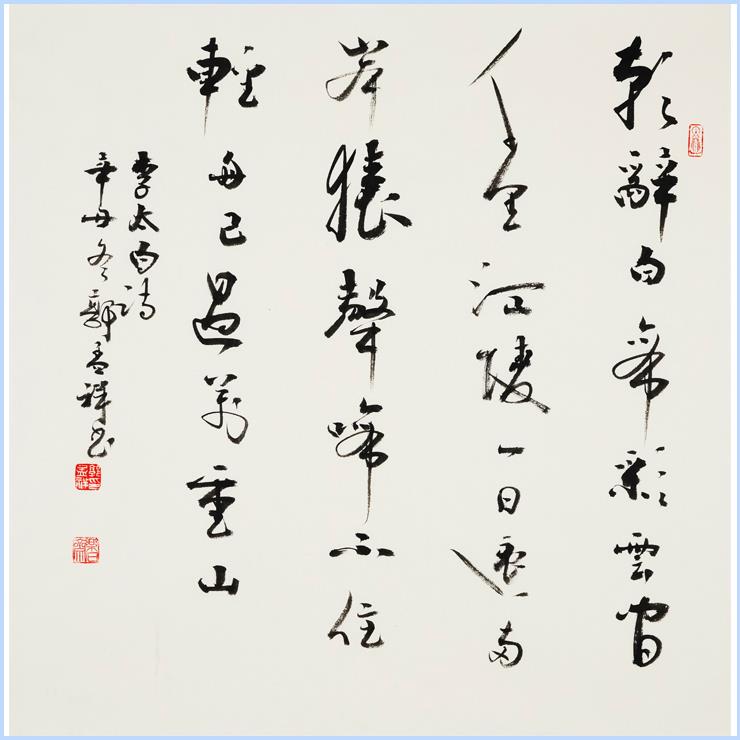 朝辭白帝彩雲間
千里江陵一日還兩
岸猿聲啼不住
輕舟已過萬重山
李太白詩
辛丑冬郭孟祥書